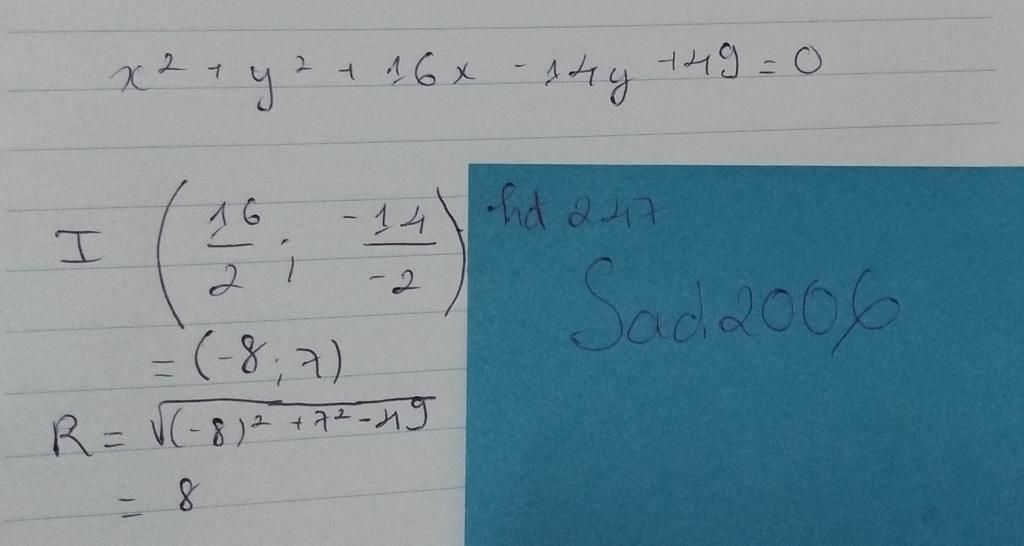 x² + y² + 16x - 14y + 49 = 0
I (16/2 ; -14/-2)
= (-8 ; 7)
R = √((-8)² + 7² - 49)
= 8
hd 247
Sad2006